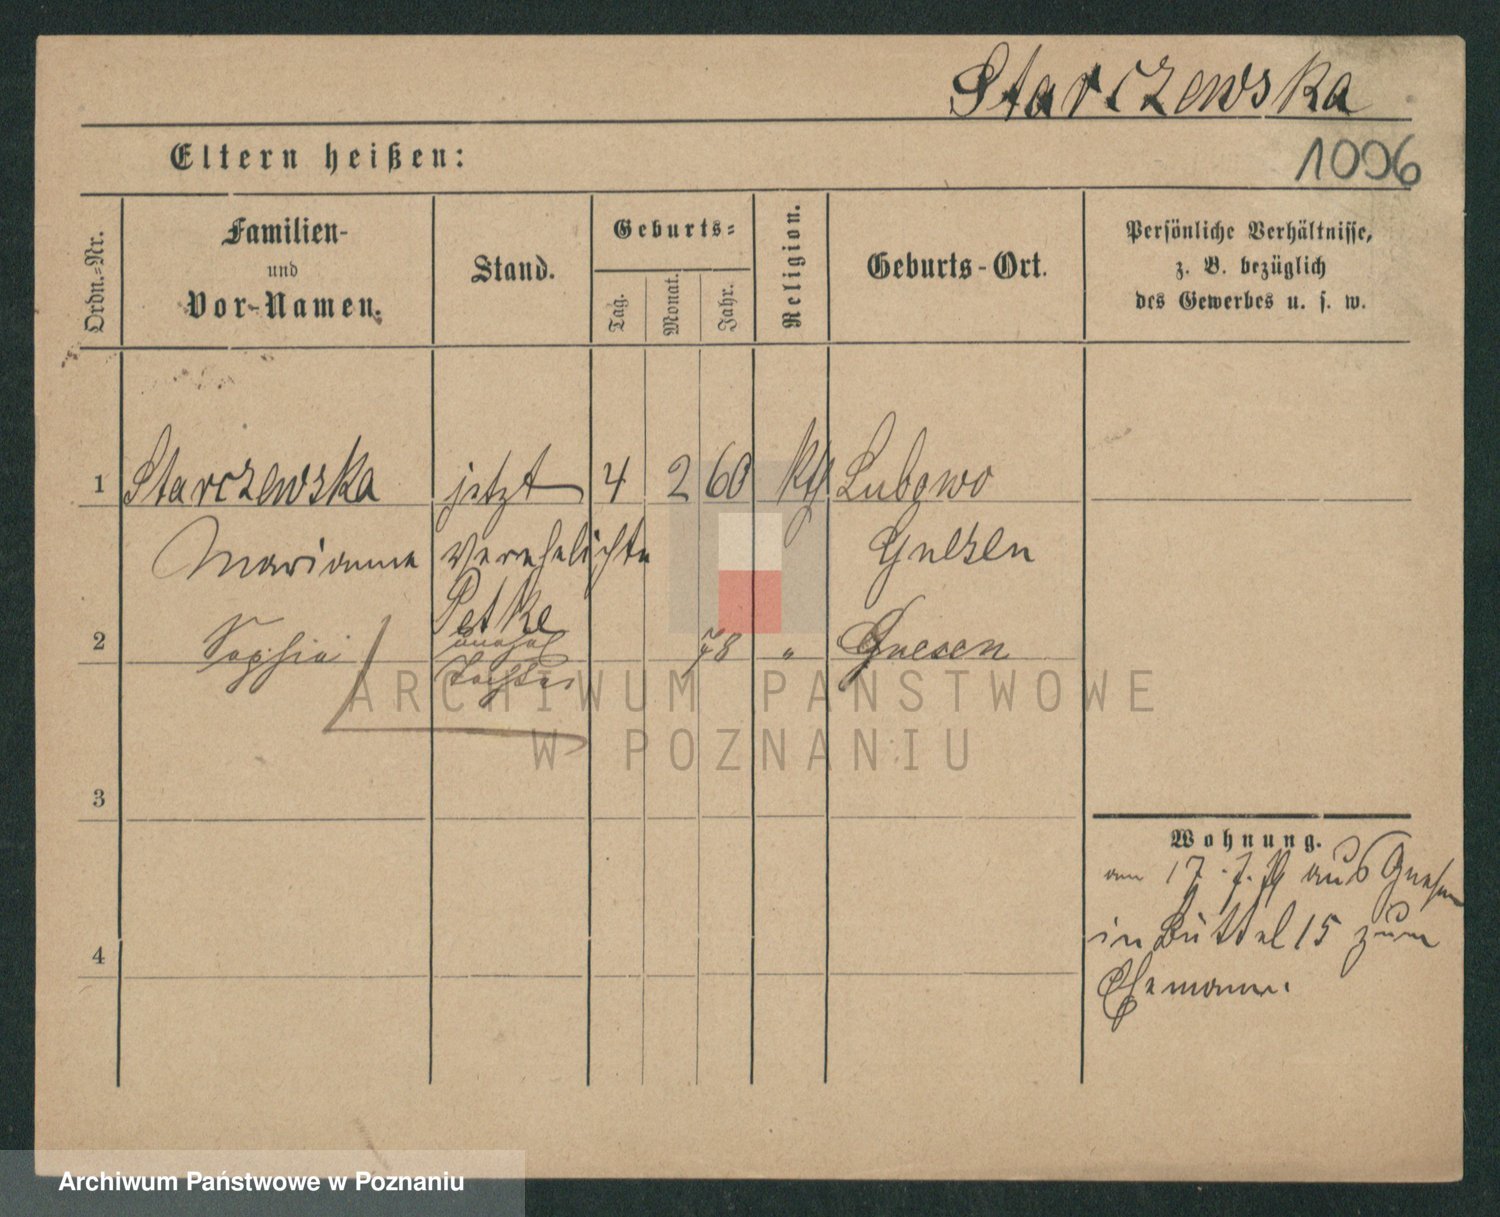 Starczewska
Eltern heißen:
1006
Ordn.=Nr.
Familien-
und
Vor-Namen.
Stand.
Geburts=
Tag.
Monat.
Jahr.
Religion.
Geburts-Ort.
Persönliche Verhältnisse,
z. B. bezüglich
des Gewerbes u. s. w.
1 Starczewska jetzt 4 2 60 kth Lubowo
Marianna verehelichte Gnesen
Petke
2 Sophia unehel 78 " Gnesen
Tochter
ARCHIWUM PAŃSTWOWE
W POZNANIU
3
Wohnung.
am 17.7. aus Gnesen
in Büttel 15 zum
Ehemann.
4
Archiwum Państwowe w Poznaniu